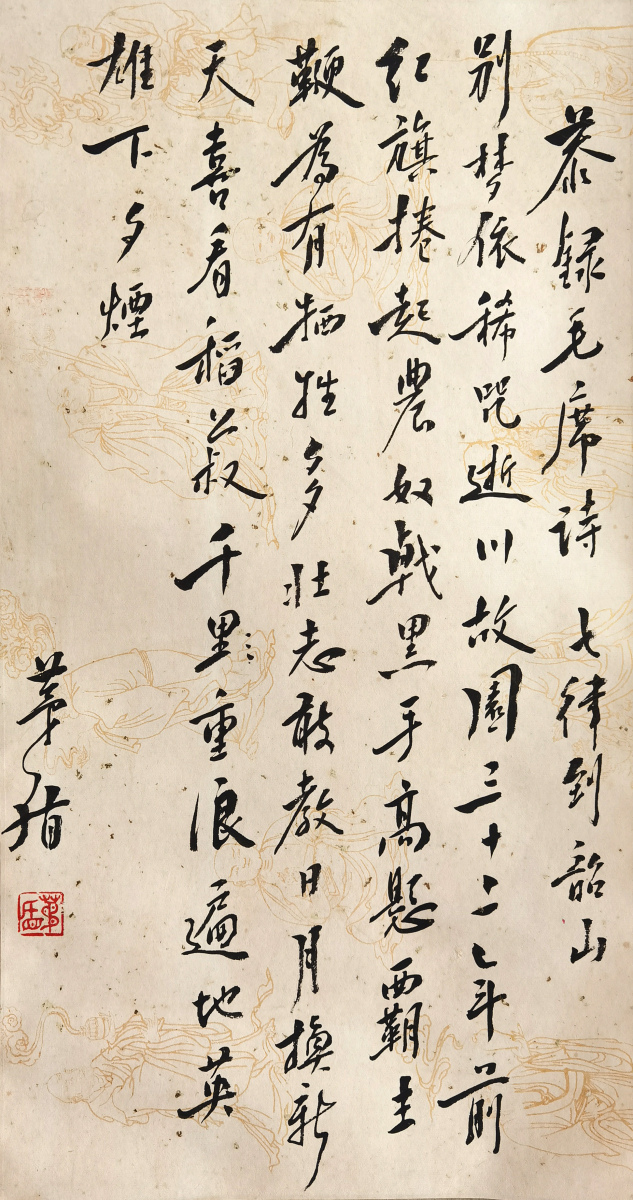 恭録毛席诗 七律到韶山
别梦依稀咒逝川故園三十二年前
红旗捲起農奴戟黑手高懸霸主
鞭為有牺牲多壮志敢教日月換新
天喜看稻菽千里重浪遍地英
雄下夕煙
茅盾
茅盾